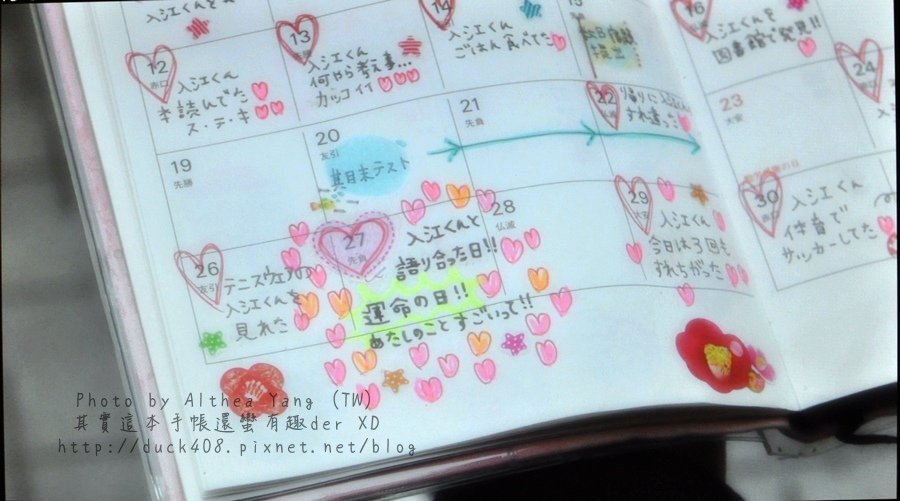 入江くんを
12
赤口
入江くん
本読んでた
ス・テ・キ
13
入江くん
何やら考え事…
カッコイイ
14
入江くん
ごはん食べてた
15
16
入江くんを
図書館で発見!!
19
先勝
20
友引
期末テスト
21
先負
22
帰りに入江くんと
すれ違った
23
大安
24
赤口
26
友引
テニスウェアの
入江くんを
見れた
27
先負
入江くんと
語り合った日!!
運命の日!!
あたしのことすごいって!!
28
仏滅
29
大安
入江くん
今日は3回も
すれちがった
30
赤口
入江くん
体育で
サッカーしてた
Photo by Althea Yang (TW)
其實這本手帳還蠻有趣der XD
http://duck408.pixnet.net/blog